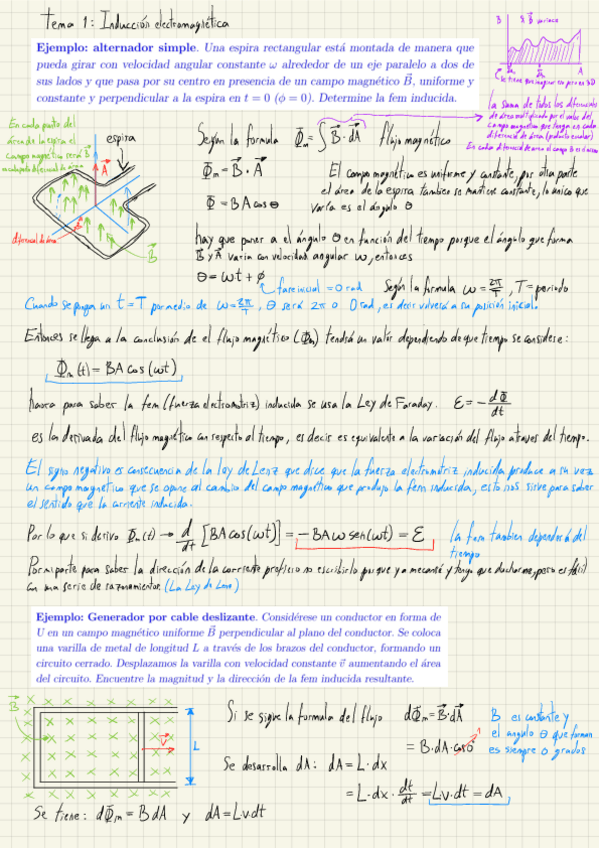 Tema 1: Inducción electromagnética
Ejemplo: alternador simple. Una espira rectangular está montada de manera que
pueda girar con velocidad angular constante ω alrededor de un eje paralelo a dos de
sus lados y que pasa por su centro en presencia de un campo magnético B⃗, uniforme y
constante y perpendicular a la espira en t = 0 (ϕ = 0). Determine la fem inducida.
B
B varíava
A
la suma de todos los diferenciales
de área multiplicado por el valor del
campo magnético que tengan en cada
diferencial de área (producto escalar)
En cada diferencial de área el campo B es único
En cada punto del
área de la espira el
campo magnético será B⃗
espira
A⃗
diferencial de área
B⃗
Según la formula Φm = ∫ B⃗ · dA⃗ flujo magnético
Φm = B⃗ · A⃗
Φ = BA cos θ
El campo magnético es uniforme y constante, por otra parte
el área de la espira tambien se mantiene constante, lo unico que
varía es el ángulo θ
hay que poner a el ángulo θ en función del tiempo porque el ángulo que forma
B⃗ y A⃗ varia con velocidad angular ω, entonces
θ = ωt + ϕ
fase inicial = 0 rad
Según la formula ω = 2π/T, T = periodo
Cuando se ponga un t = T por medio de ω = 2π/T, θ será 2π o 0 rad, es decir volverá a su posición inicial.
Entonces se llega a la conclusión de el flujo magnético (Φm) tendrá un valor dependiendo de que tiempo se considere:
Φm(t) = BA cos(ωt)
para saber la fem (fuerza electromotriz) inducida se usa la Ley de Faraday. ε = - dΦ/dt
es la derivada del flujo magnético con respecto al tiempo, es decir es equivalente a la variación del flujo atraves del tiempo.
El signo negativo es consecuencia de la ley de Lenz que dice que la fuerza electromotriz inducida produce a su vez
un campo magnetico que se opone al cambio del campo magnético que produjo la fem inducida, esto nos sirve para saber
el sentido que la corriente inducida.
Por lo que si derivo Φm(t) → d/dt [BA cos(ωt)] = -BAω sen(ωt) = ε
la fem tambien dependerá del
tiempo
Por mi parte para saber la dirección de la corriente prefiero no escribirlo porque ya me cansé y tengo que ducharme, pero es fácil
con una serie de razonamientos (La Ley de Lenz)
Ejemplo: Generador por cable deslizante. Considérese un conductor en forma de
U en un campo magnético uniforme B⃗ perpendicular al plano del conductor. Se coloca
una varilla de metal de longitud L a través de los brazos del conductor, formando un
circuito cerrado. Desplazamos la varilla con velocidad constante v⃗ aumentando el área
del circuito. Encuentre la magnitud y la dirección de la fem inducida resultante.
B⃗
v⃗
L
Si se sigue la formula del flujo dΦm = B⃗ · dA⃗
= B · dA · cos 0
B es constante y
el angulo θ que forman
es siempre 0 grados
Se desarrolla dA: dA = L · dx
= L · dx · dt/dt = L·v·dt = dA
Se tiene: dΦm = B dA y dA = L·v·dt